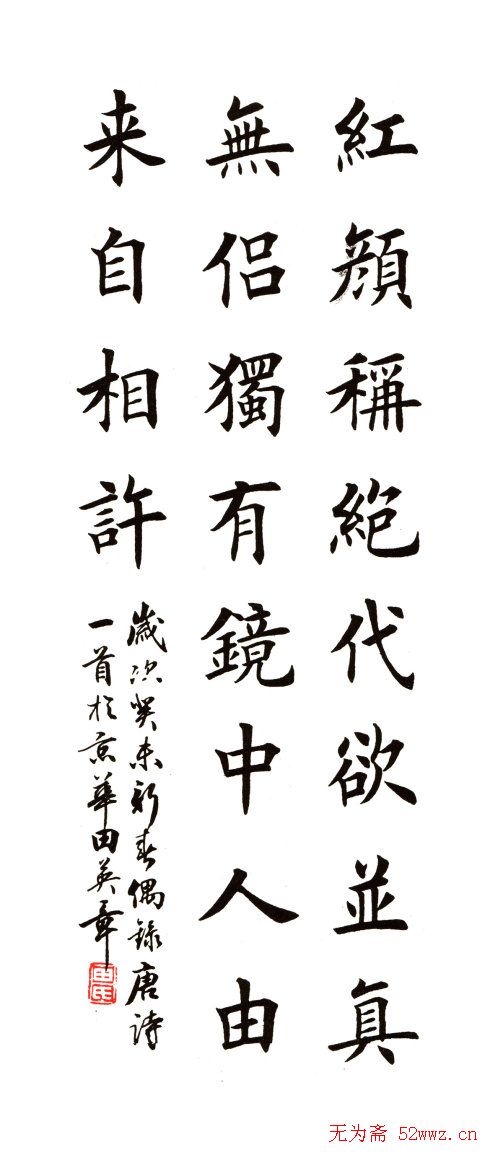 紅顔稱絕代欲並真
無侶獨有鏡中人由
来自相許
歲次癸未新春偶錄唐詩
一首於京華田英章
田氏
无为斋 52wwz.cn